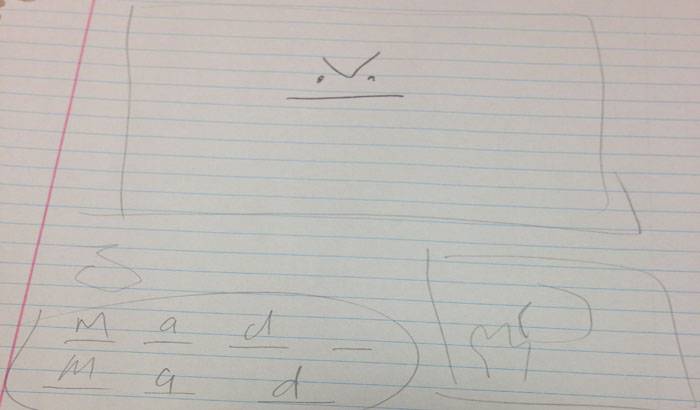 M a d _
M a d